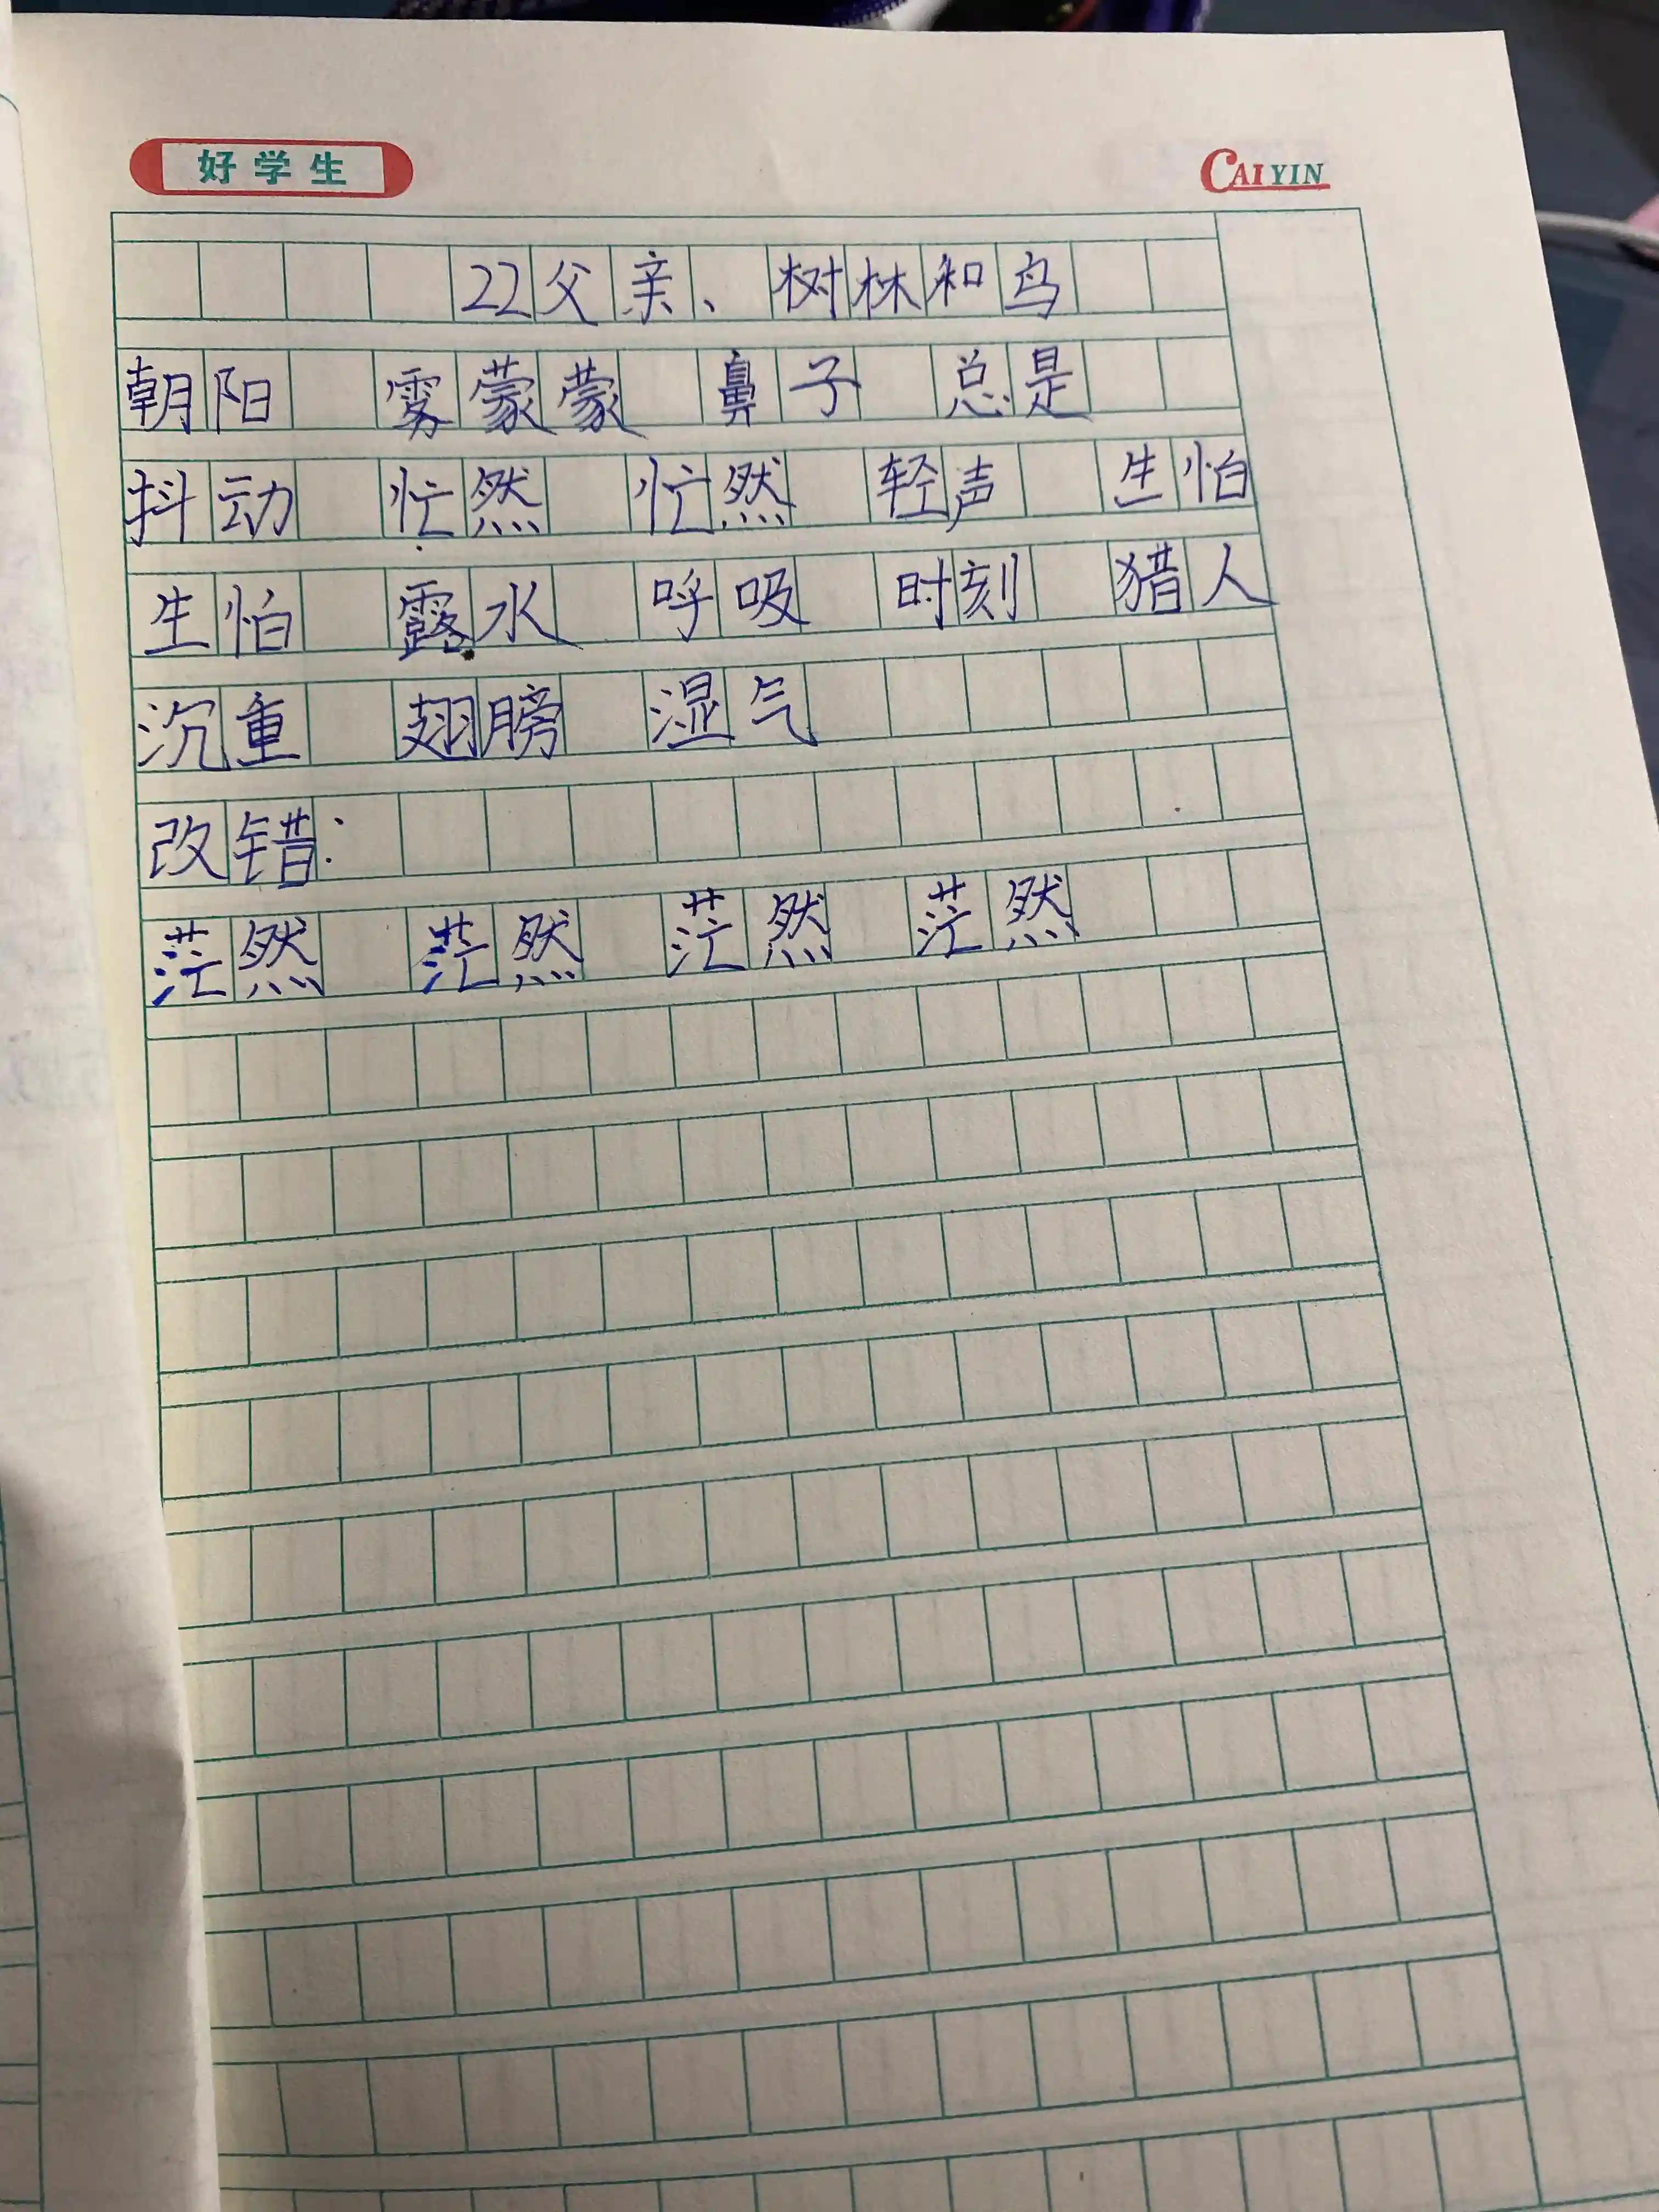 好学生 CAIYIN
22父亲、树林和鸟
朝阳 雾蒙蒙 鼻子 总是
抖动 忙然 忙然 轻声 生怕
生怕 露水 呼吸 时刻 猎人
沉重 翅膀 湿气
改错：
茫然 茫然 茫然 茫然